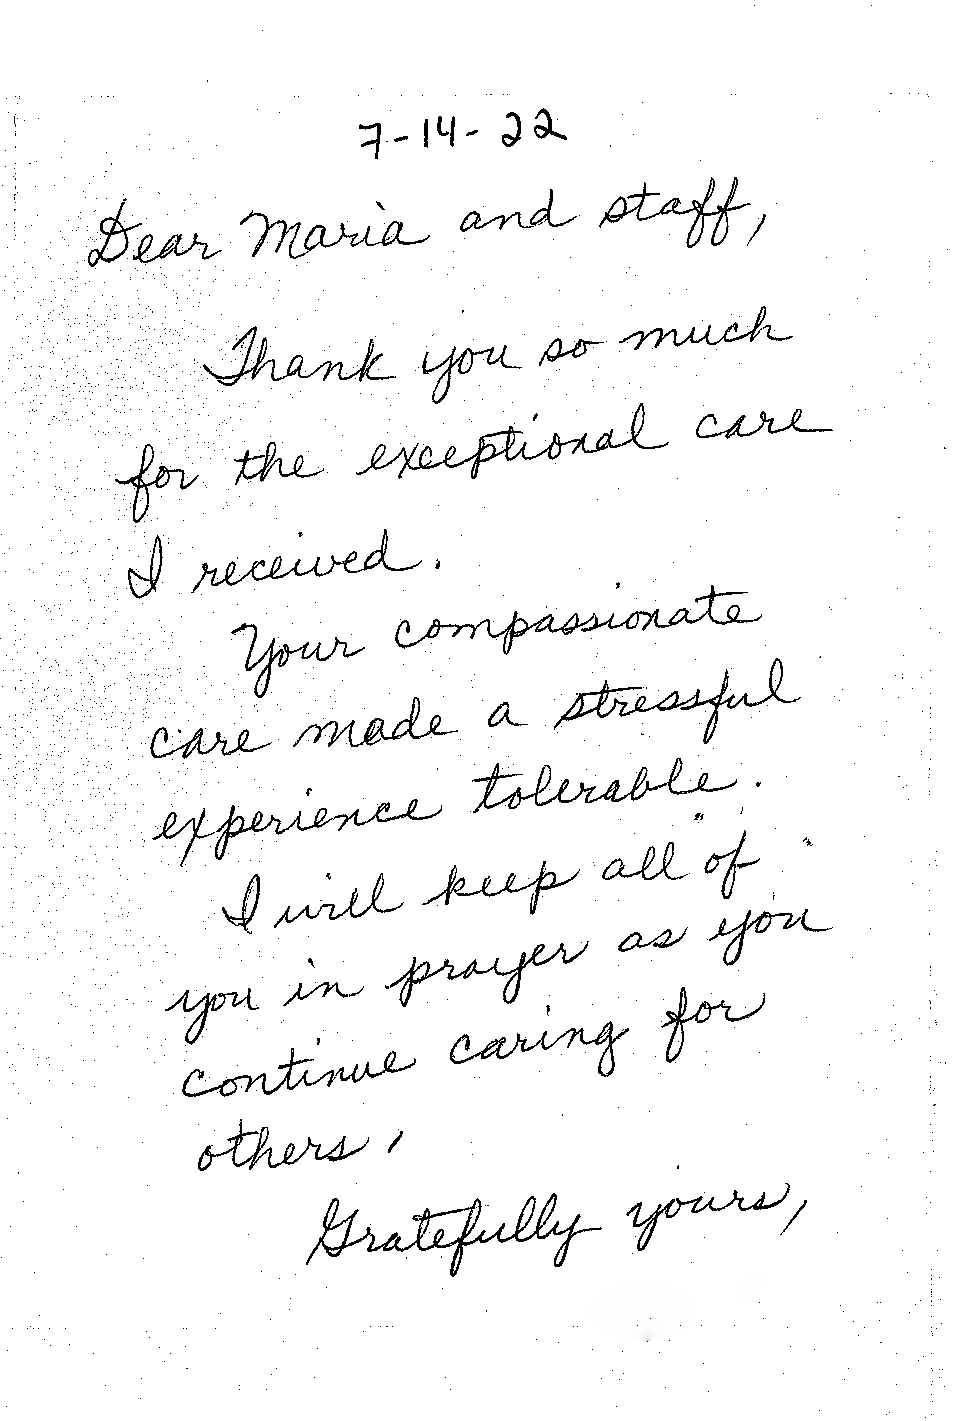 7-14-22
Dear Maria and staff,
Thank you so much
for the exceptional care
I received.
Your compassionate
care made a stressful
experience tolerable.
I will keep all of
you in prayer as you
continue caring for
others,
Gratefully yours,